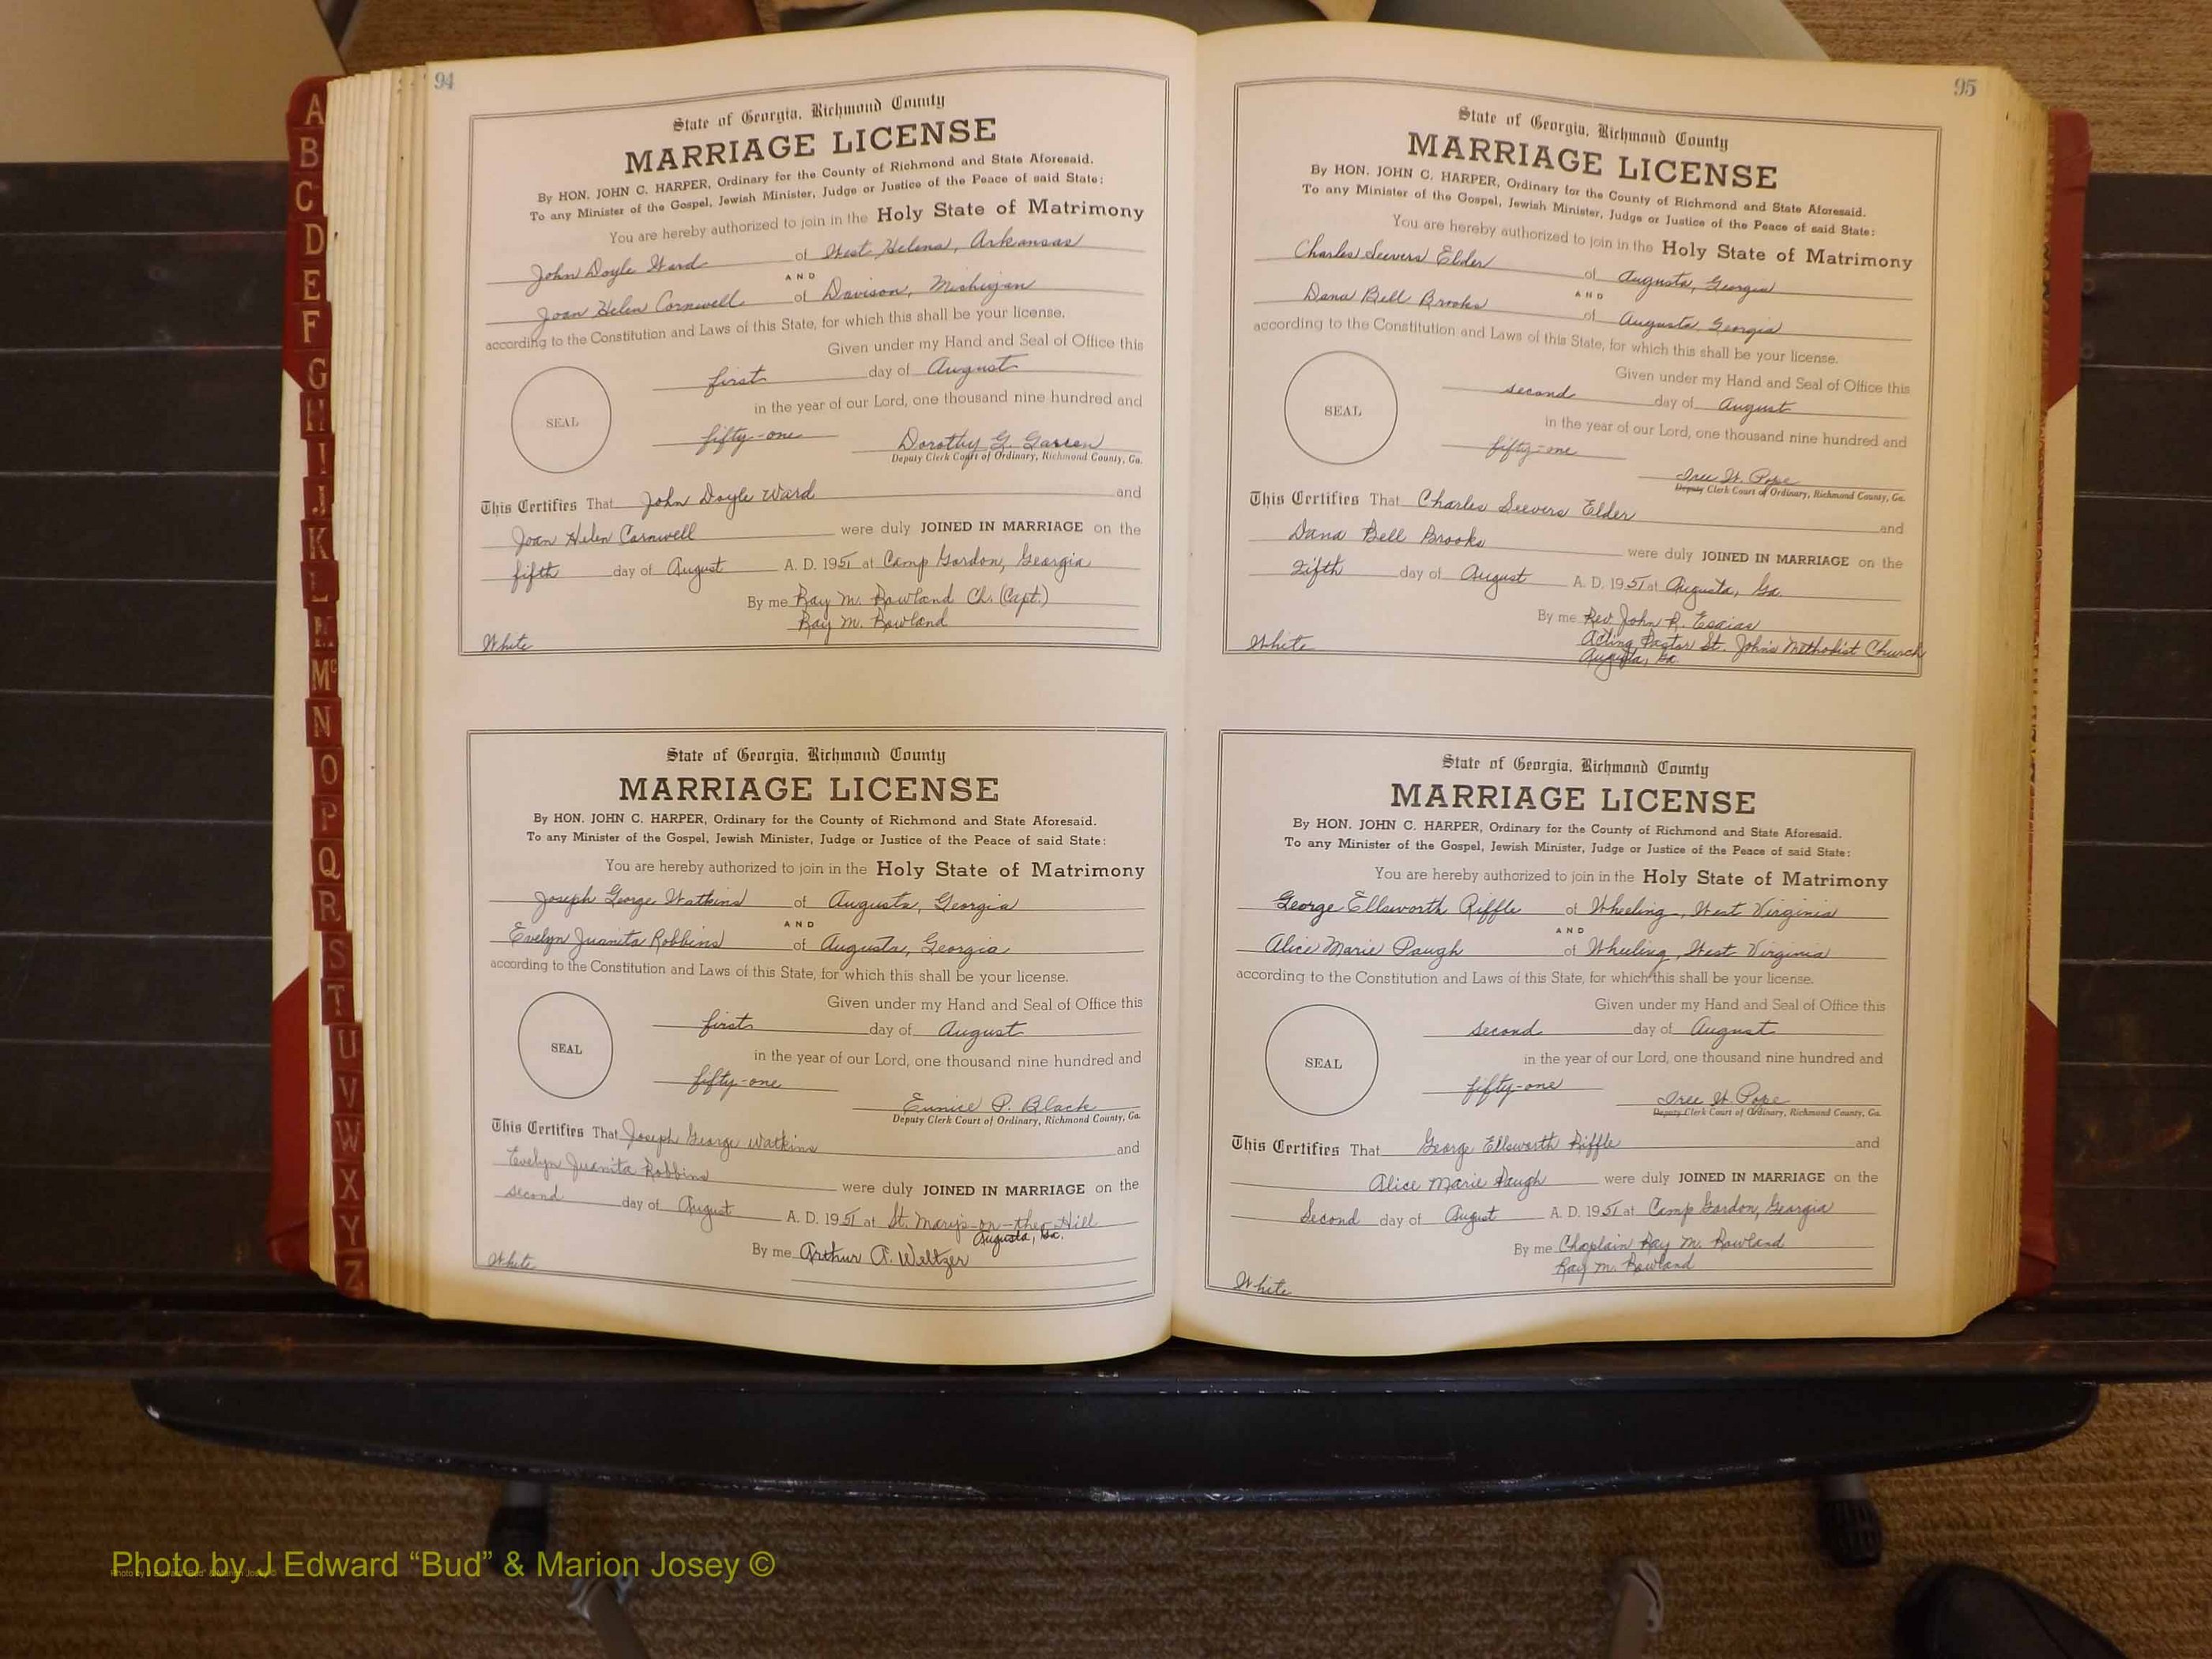 94
State of Georgia, Richmond County
MARRIAGE LICENSE
By HON. JOHN C. HARPER, Ordinary for the County of Richmond and State Aforesaid.
To any Minister of the Gospel, Jewish Minister, Judge or Justice of the Peace of said State:
You are hereby authorized to join in the Holy State of Matrimony
John Doyle Ward of West Helena, Arkansas
AND
Joan Helen Cornwell of Davison, Michigan
according to the Constitution and Laws of this State, for which this shall be your license.
Given under my Hand and Seal of Office this
first day of August
in the year of our Lord, one thousand nine hundred and
SEAL
fifty-one Dorothy G.
Deputy Clerk Court of Ordinary, Richmond County, Ga.
This Certifies That John Doyle Ward and
Joan Helen Cornwell were duly JOINED IN MARRIAGE on the
fifth day of August A. D. 1951 at Camp Gordon, Georgia
By me Ray M. Rowland Ch. (Capt.)
Ray M. Rowland
White
State of Georgia, Richmond County
MARRIAGE LICENSE
By HON. JOHN C. HARPER, Ordinary for the County of Richmond and State Aforesaid.
To any Minister of the Gospel, Jewish Minister, Judge or Justice of the Peace of said State:
You are hereby authorized to join in the Holy State of Matrimony
Joseph George Watkins of Augusta, Georgia
AND
Evelyn Juanita Robbins of Augusta, Georgia
according to the Constitution and Laws of this State, for which this shall be your license.
Given under my Hand and Seal of Office this
first day of August
SEAL
in the year of our Lord, one thousand nine hundred and
fifty-one Eunice P. Black
Deputy Clerk Court of Ordinary, Richmond County, Ga.
This Certifies That Joseph George Watkins and
Evelyn Juanita Robbins were duly JOINED IN MARRIAGE on the
second day of August A. D. 1951 at St. Mary's-on-the-Hill
Augusta, Ga.
By me Arthur A. Weltzer
White
95
State of Georgia, Richmond County
MARRIAGE LICENSE
By HON. JOHN C. HARPER, Ordinary for the County of Richmond and State Aforesaid.
To any Minister of the Gospel, Jewish Minister, Judge or Justice of the Peace of said State:
You are hereby authorized to join in the Holy State of Matrimony
Charles Seevers Elder of Augusta, Georgia
AND
Dana Bell Brooks of Augusta, Georgia
according to the Constitution and Laws of this State, for which this shall be your license.
Given under my Hand and Seal of Office this
second day of August
SEAL
in the year of our Lord, one thousand nine hundred and
fifty-one
Pope
Deputy Clerk Court of Ordinary, Richmond County, Ga.
This Certifies That Charles Seevers Elder and
Dana Bell Brooks were duly JOINED IN MARRIAGE on the
Fifth day of August A. D. 1951 at Augusta, Ga.
By me Rev. John R. Esaias
Acting Pastor St. John's Methodist Church
Augusta, Ga.
White
State of Georgia, Richmond County
MARRIAGE LICENSE
By HON. JOHN C. HARPER, Ordinary for the County of Richmond and State Aforesaid.
To any Minister of the Gospel, Jewish Minister, Judge or Justice of the Peace of said State:
You are hereby authorized to join in the Holy State of Matrimony
George Ellsworth Riffle of Wheeling, West Virginia
AND
Alice Marie Paugh of Wheeling, West Virginia
according to the Constitution and Laws of this State, for which this shall be your license.
Given under my Hand and Seal of Office this
second day of August
in the year of our Lord, one thousand nine hundred and
SEAL
fifty-one Pope
Deputy Clerk Court of Ordinary, Richmond County, Ga.
This Certifies That George Ellsworth Riffle and
Alice Marie Paugh were duly JOINED IN MARRIAGE on the
Second day of August A. D. 1951 at Camp Gordon, Georgia
By me Chaplain Ray M. Rowland
Ray M. Rowland
White
A
B
C
D
E
F
G
H
I
J
K
L
M
Mc
N
O
P
Q
R
S
T
U
V
W
X
Y
Z
Photo by J Edward “Bud” & Marion Josey ©